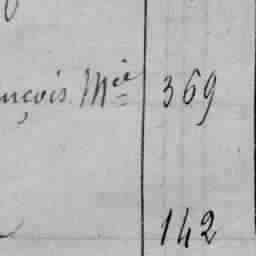 nçois Mie 369
142